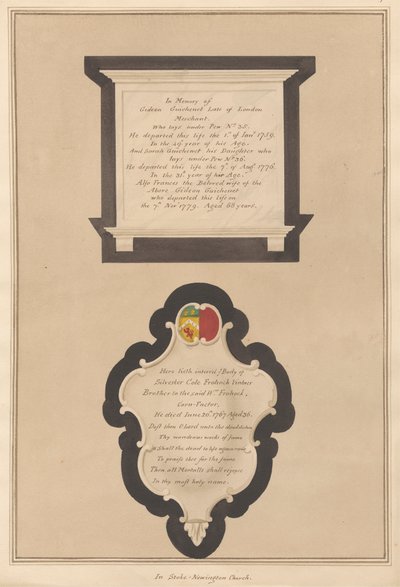 In Memory of
Gideon Guichenet Late of London
Merchant.
Who lays under Pew No. 35.
He departed this life the 1st. of Janry. 1759.
In the 49th year of his Age.
And Sarah Guichenet his Daughter who
lays under Pew No. 36.
He departed this life the 7th. of Augt. 1776.
In the 31st. year of her Age.
Also Frances the Beloved wife of the
Above Gideon Guichenet
who departed this life on
the 7th Novr 1779. Aged 68 years.
Here lieth interred ye Body of
Silvester Cole Frohock Vintner
Brother to the said Wm. Frohock,
Corn-Factor,
He died June 20th. 1767 Aged 36.
Dost thou O Lord unto the
Thy wondrous works of fame
Shall the dead to life again
To praise thee for the same
Then all Mortalls shall rejoyce
In thy most holy name.
In Stoke-Newington Church.